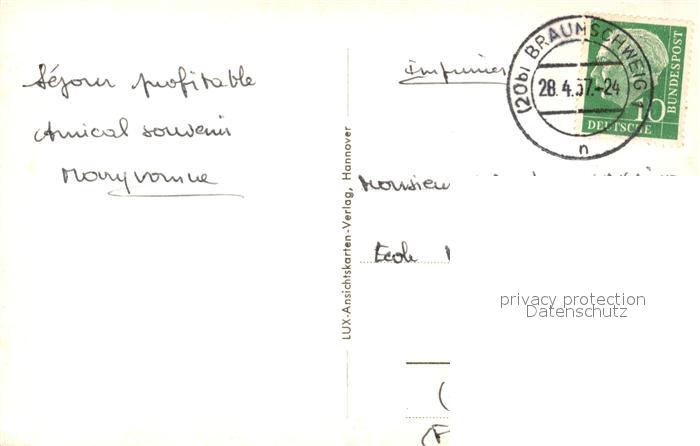 Séjour profitable
Amical souvenir
Maryvonne
LUX-Ansichtskarten-Verlag, Hannover
Imprimés
(20b) BRAUNSCHWEIG 1
28.4.57.-24
n
10
DEUTSCHE
BUNDESPOST
Monsieur
Ecole
privacy protection
Datenschutz